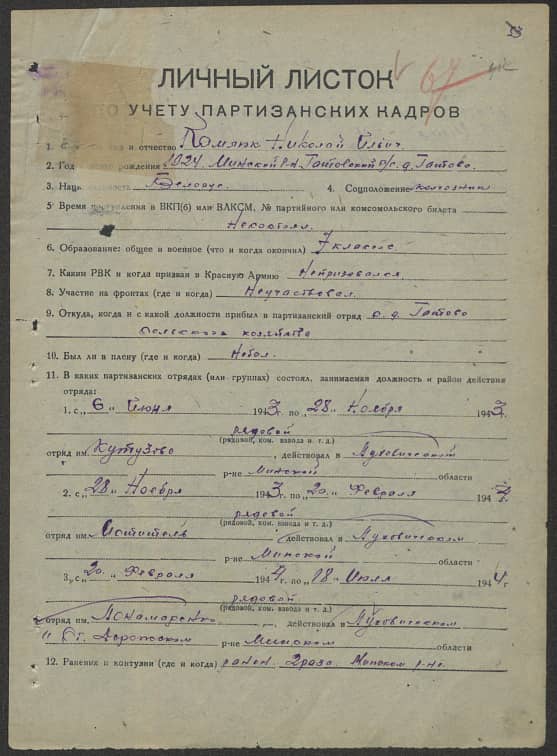 33
67
ЛИЧНЫЙ ЛИСТОК
ПО УЧЕТУ ПАРТИЗАНСКИХ КАДРОВ
1. и отчество Николай Ильич
2. Год рождения 1927. Минской Р-н. Гатовский с/с. д. Гатово.
3. Национальность Белорус 4. Соцположение колхозник
5. Время поступления в ВКП(б) или ВЛКСМ, № партийного или комсомольского билета
Несостоял.
6. Образование: общее и военное (что и когда окончил) 7 классов.
7. Каким РВК и когда призван в Красную Армию Непризывался
8. Участие на фронтах (где и когда) Неучаствовал.
9. Откуда, когда и с какой должности прибыл в партизанский отряд с. д. Гатово
сельского хозяйства
10. Был ли в плену (где и когда) Небыл.
11. В каких партизанских отрядах (или группах) состоял, занимаемая должность и район действия
отряда:
1. с „6„ Июня 1943 г. по „28„ Ноября 1943 г.
рядовой
(рядовой, ком. взвода и т. д.)
отряд им. Кутузово, действовал в Пуховическом
р-не Минской области
2. с „28„ Ноября 1943 г. по „20„ Февраля 1944 г.
рядовой
(рядовой, ком. взвода и т. д.)
отряд им. Мститель действовал в Пуховическом
р-не Минской области
3. с „20„ Февраля 1944 г. по „18„ Июля 1944 г.
рядовой
(рядовой, ком. взвода и т. д.)
отряд им. Панамаренко, действовал в Пуховическом
р-не Минском области
12. Ранения и контузии (где и когда) ранен. 2 раза. Минском р-не